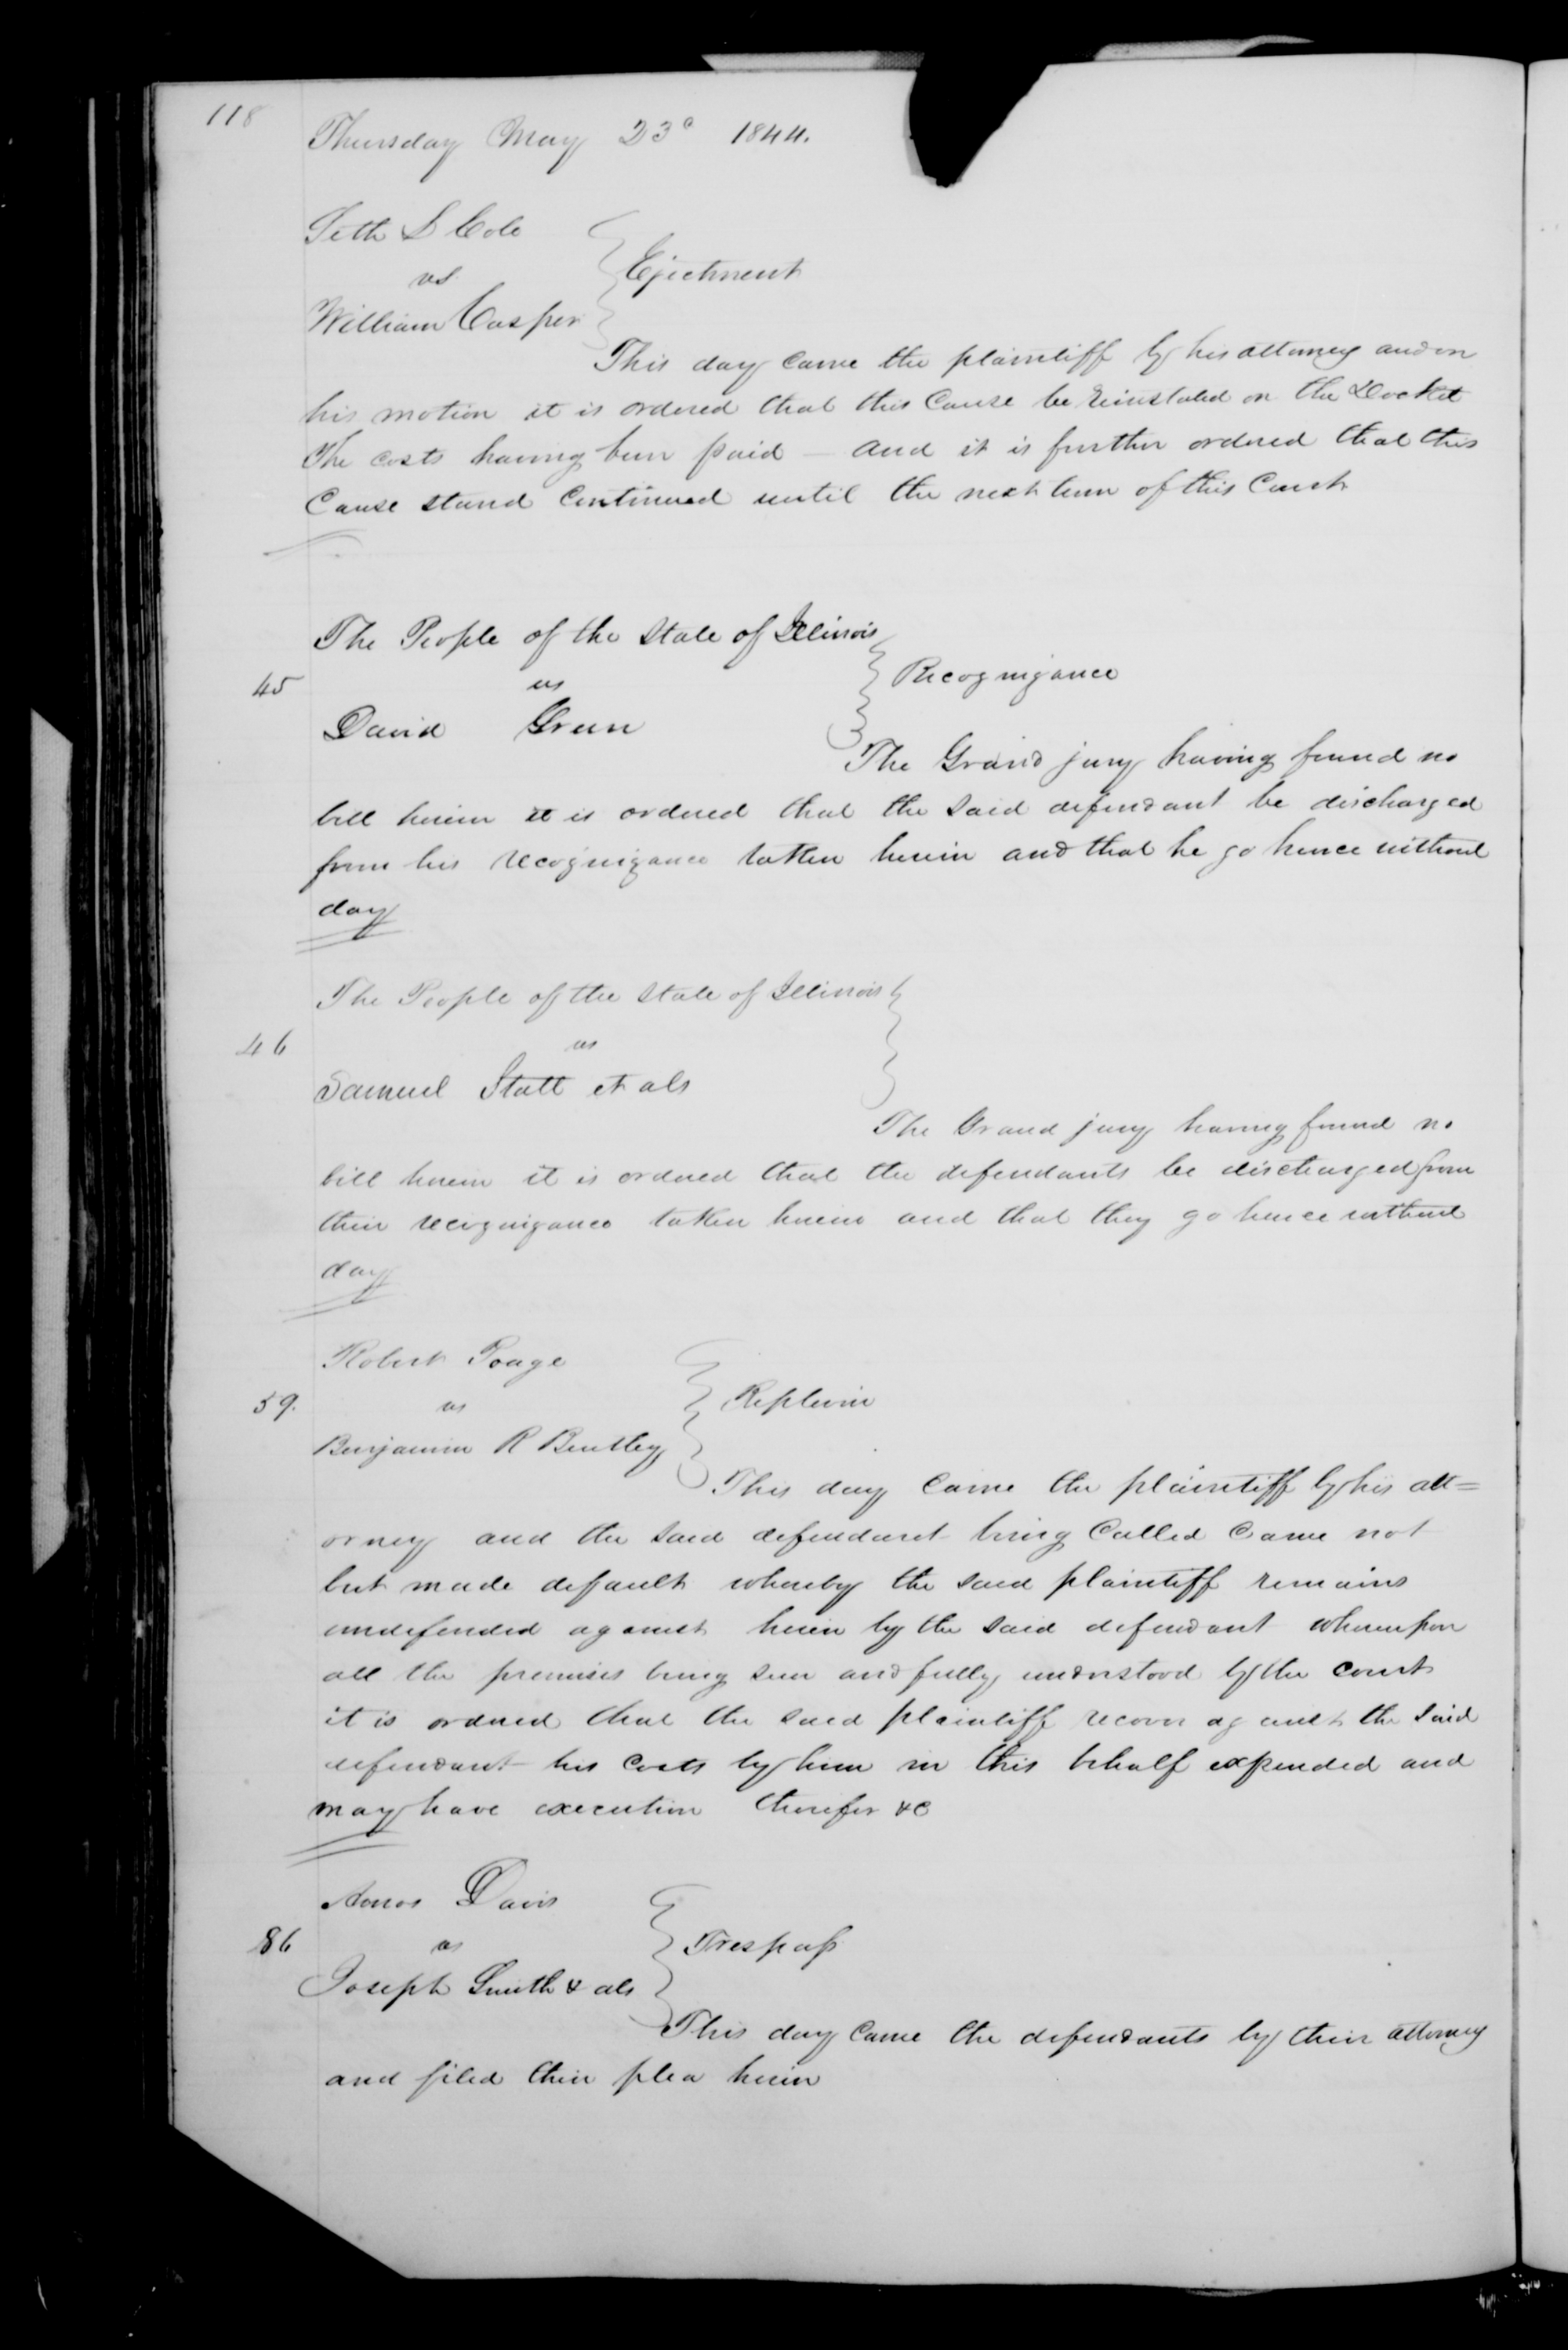 118
Thursday May 23d 1844.
Seth S Cole
vs
Ejectment
William Casper
This day came the plaintiff by his attorney and on
his motion it is ordered that this Cause be reinstated on the Docket
The costs having been paid – and it is further ordered that this
Cause stand Continued until the next term of this Court
The People of the State of Illinois
45 vs Recognizance
David Green
The Grand jury having found no
bill herein it is ordered that the said defendant be discharged
from his recognizance taken herein and that he go hence without
day
The People of the State of Illinois
46 vs
Samuel Statt et als
The Grand jury having found no
bill herein it is ordered that the defendants be discharged from
their recognizance taken herein and that they go hence without
day
Robert Poage
59. vs Replevin
Benjamin R Bentley
This day came the plaintiff by his att=
orney and the said defendant being Called Came not
but made default whereby the said plaintiff remains
undefended against herein by the said defendant whereupon
all the premises being seen and fully understood by the court
it is ordered that the said plaintiff recover against the said
defendant his Costs by him in this behalf expended and
may have execution therefor &c
Amos Davis
86 vs Trespass
Joseph Smith & als
This day Came the defendants by their attorney
and filed their plea herein